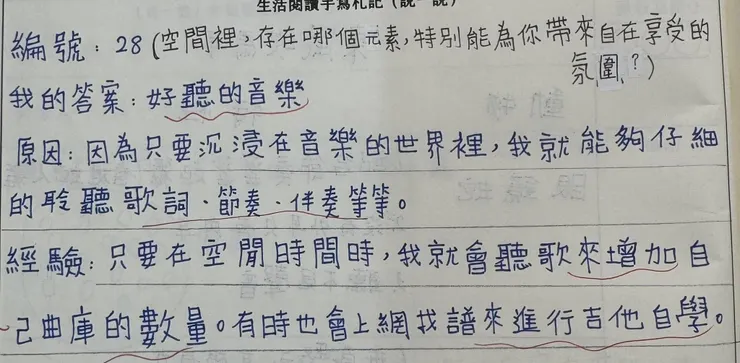 生活閱讀手寫札記（說一說）
編號：28（空間裡，存在哪個元素，特別能為你帶來自在享受的
氛圍？）
我的答案：好聽的音樂
原因：因為只要沉浸在音樂的世界裡，我就能夠仔細
的聆聽歌詞、節奏、伴奏等等。
經驗：只要在空閒時間時，我就會聽歌來增加自
己曲庫的數量。有時也會上網找譜來進行吉他自學。